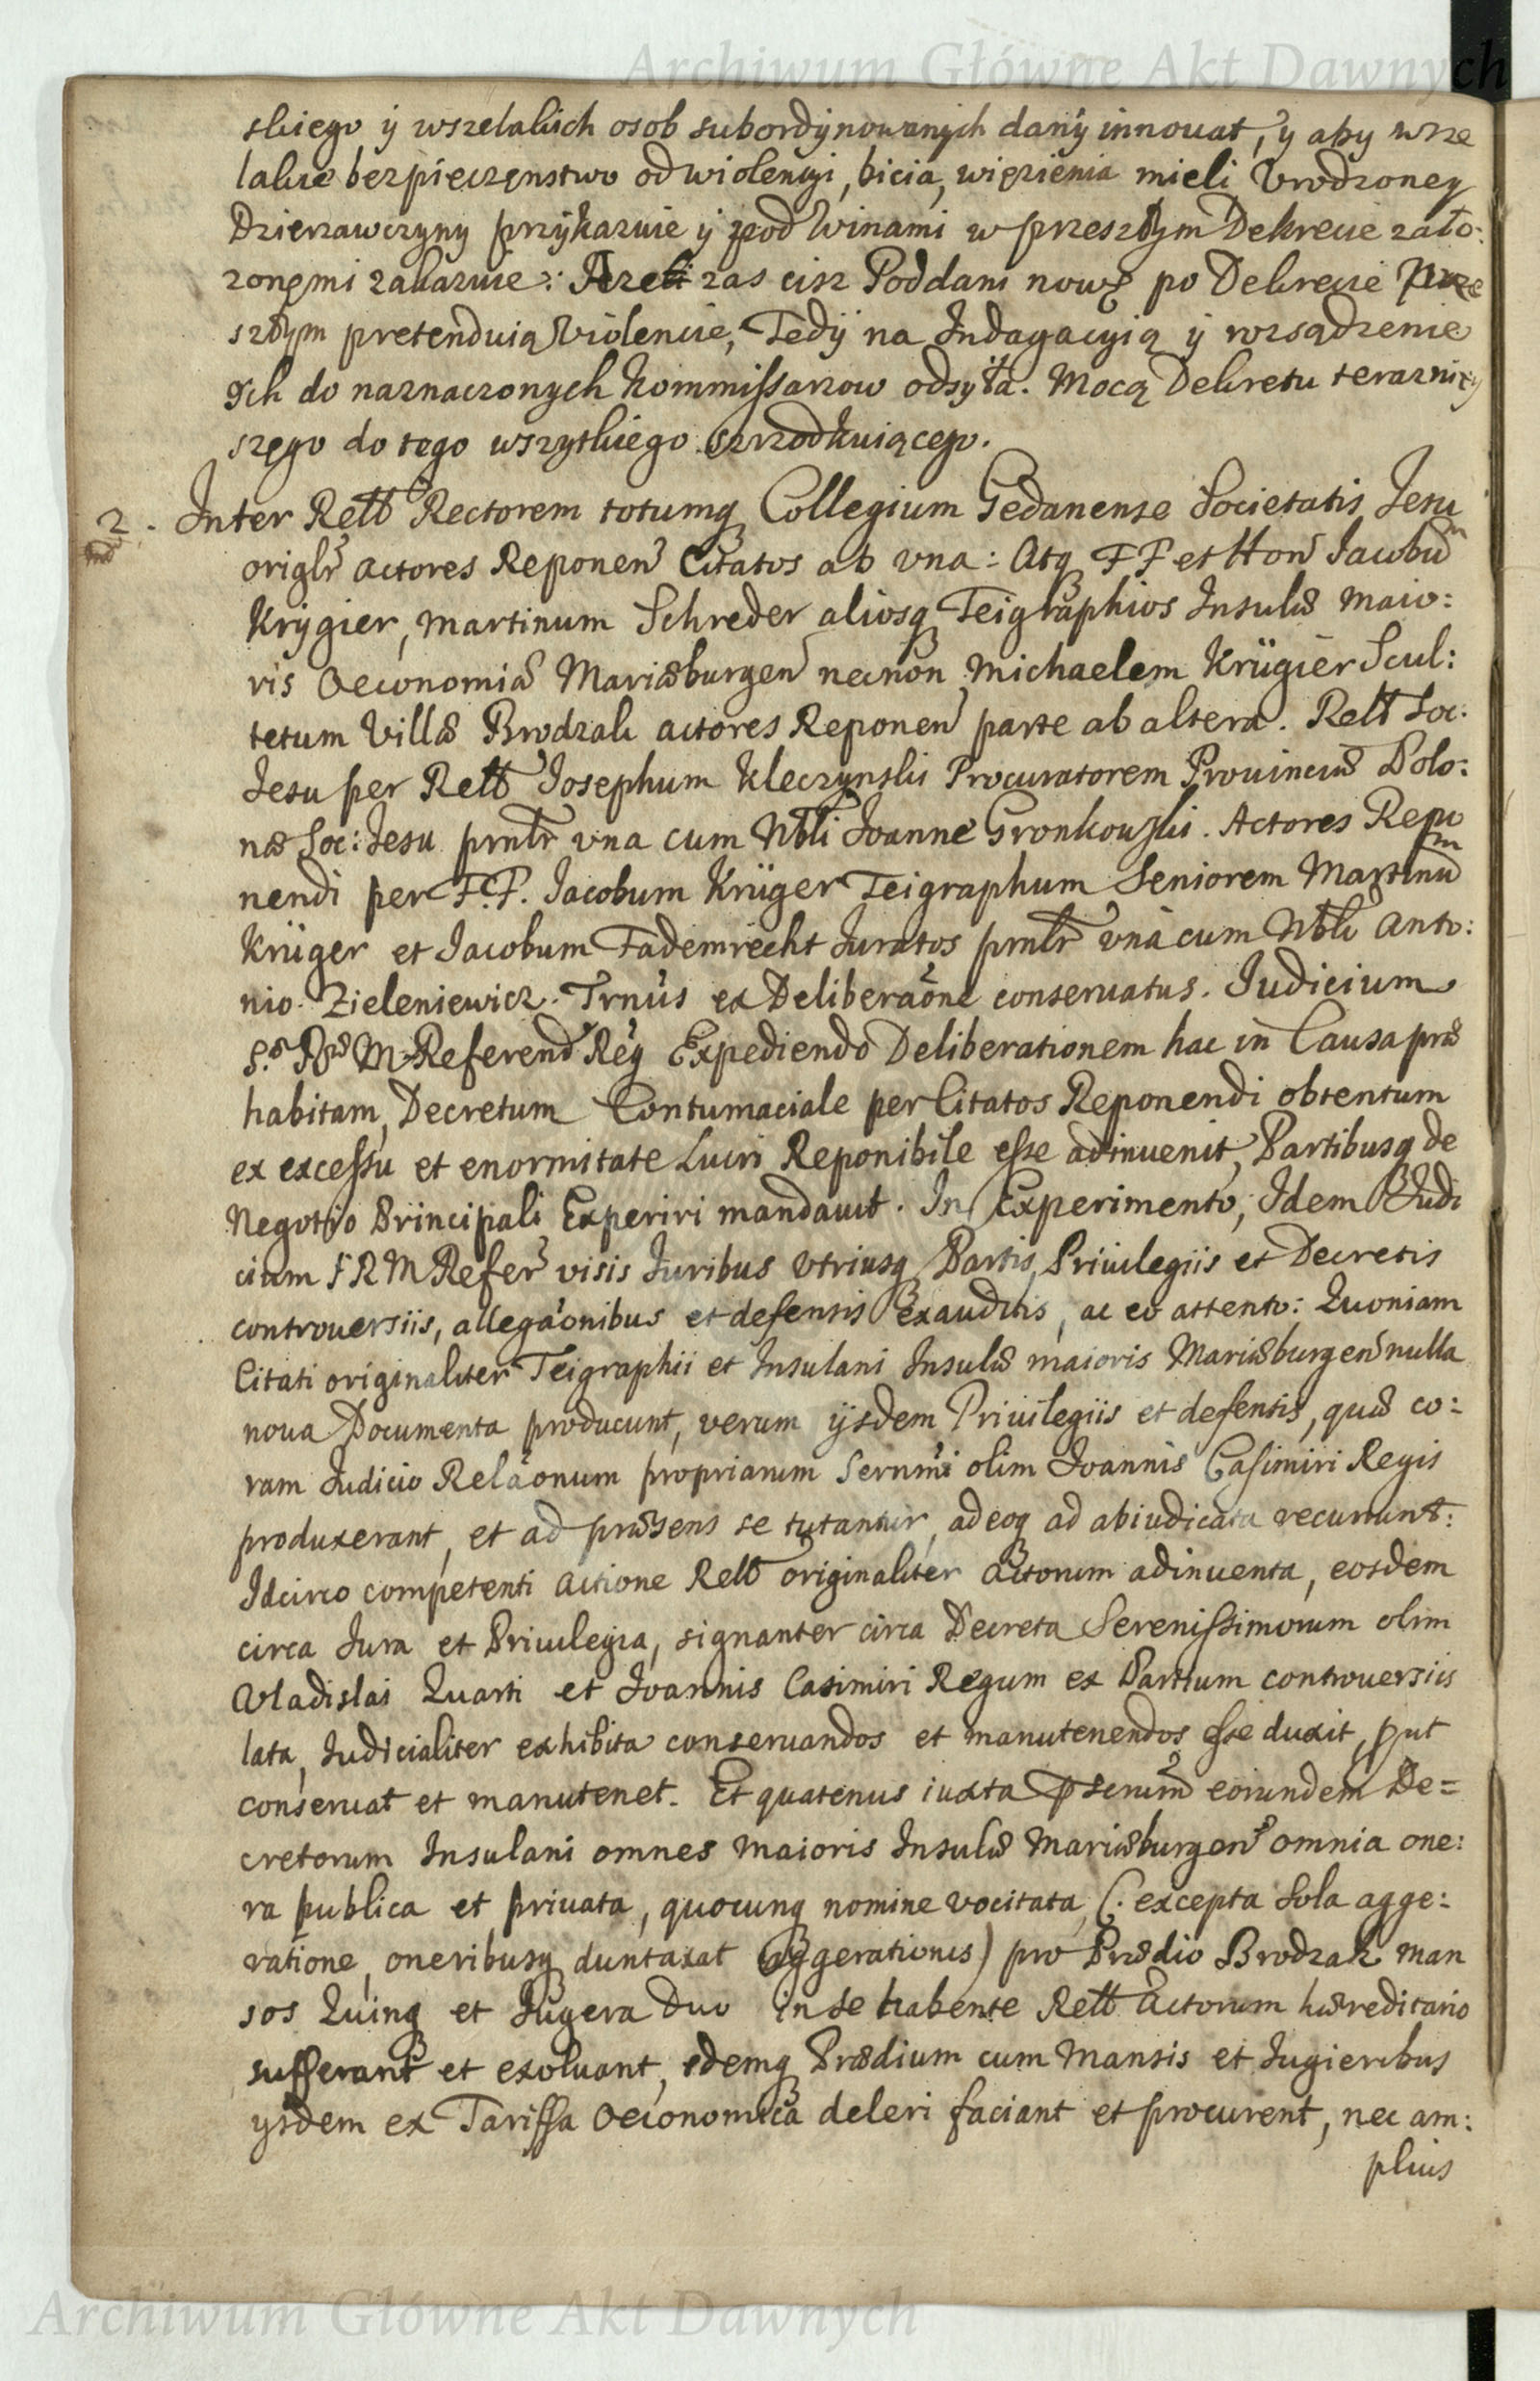 Archiwum Główne Akt Dawnych
skiego ÿ wszelakich osob subordÿnowanÿch danÿ innouat, ÿ aby wsze
lakie bezpieczęnstwo od wiolencÿi, bicia, więzienia mieli Vrodzoney
Dzierzawczyny przÿkazuie ÿ pod Winami w przeszłym Dekrecie zało:
zonęmi zakazuie: Jezeli zas cisz Poddani nowę po Dekrecie Prze
szłym pretenduią Violencie, Tedÿ na Indagacyią ÿ rozsądzenie
Ich do naznaczonych Kommissarzow odsyła. Mocą Dekretu teraznię
szego do tego wszytkiego szrzodkuiącego.
2. Inter Rell Rectorem totumq Collegium Gedanense Societatis Jesu
origlr actores Reponen Citatos ab vna: Atq FF et Hon Iacobum
Krÿgier, Martinum Schreder aliosq Teigraphios Insulæ maio:
ris Oeconomiæ Mariæburgen necnon Michaelem Krügier Scul:
tetum Villæ Brodzak actores Reponen parte ab altera. Rell Soc:
Jesu per Rell Josephum Kleczynski Procuratorem Prouinciæ Polo:
næ Soc: Jesu prntr vna cum Nbli Joanne Gronkowski. Actores Repo
nendi per F.F. Iacobum Krüger Teigraphum Seniorem Martinum
Krüger et Iacobum Fademrecht Juratos prntr vna cum Nbli Anto:
nio Zieleniewicz. Trnus ex Deliberaone conseruatus. Iudicium
S. R. M. Referend Reg Expediendo Deliberationem hac in Causa præ
habitam, Decretum Contumaciale per Citatos Reponendi obtentum
ex excessu et enormitate Lucri Reponibile esse adinuenit, Partibusq de
Negotio Principali Experiri mandauit. In Experimento, Idem Judi
cium S R M Refer visis Iuribus vtriusq Partis, Priuilegiis et Decretis
controuersiis, allegaonibus et defensis exauditis, ac eo attento: Quoniam
Citati originaliter Teigraphii et Insulani Insulæ maioris Mariæburgen nulla
noua Documenta producunt, verum ÿsdem Priuilegiis et defensis, quæ co:
ram Iudicio Relaonum propriarum Sernmi olim Joannis Casimiri Regis
produxerant, et ad præsens se tutantur, adeoq ad abiudicata recurrunt:
Idcirco competenti actione Rell originaliter actorum adinuenta, eosdem
circa Jura et Priuilegia, signanter circa Decreta Serenissimorum olim
Vladislai Quarti et Joannis Casimiri Regum ex Partium controuersiis
lata, Judicialiter exhibita conseruandos et manutenendos esse duxit, put
conseruat et manutenet. Et quatenus iuxta pserum eorundem De=
cretorum Insulani omnes Maioris Insulæ Mariæburgen omnia one:
ra publica et priuata, quocunq nomine vocitata, (: excepta sola agge:
ratione, oneribusq duntaxat aggerationis) pro Prædio Brodzak man
sos Quinq et Jugera Duo in se habente Rell Actorum hæreditario
sufferant et exoluant, idemq Prædium cum Mansis et Jugieribus
ysdem ex Tariffa Oeconomica deleri faciant et procurent, nec am:
plius
Archiwum Główne Akt Dawnych